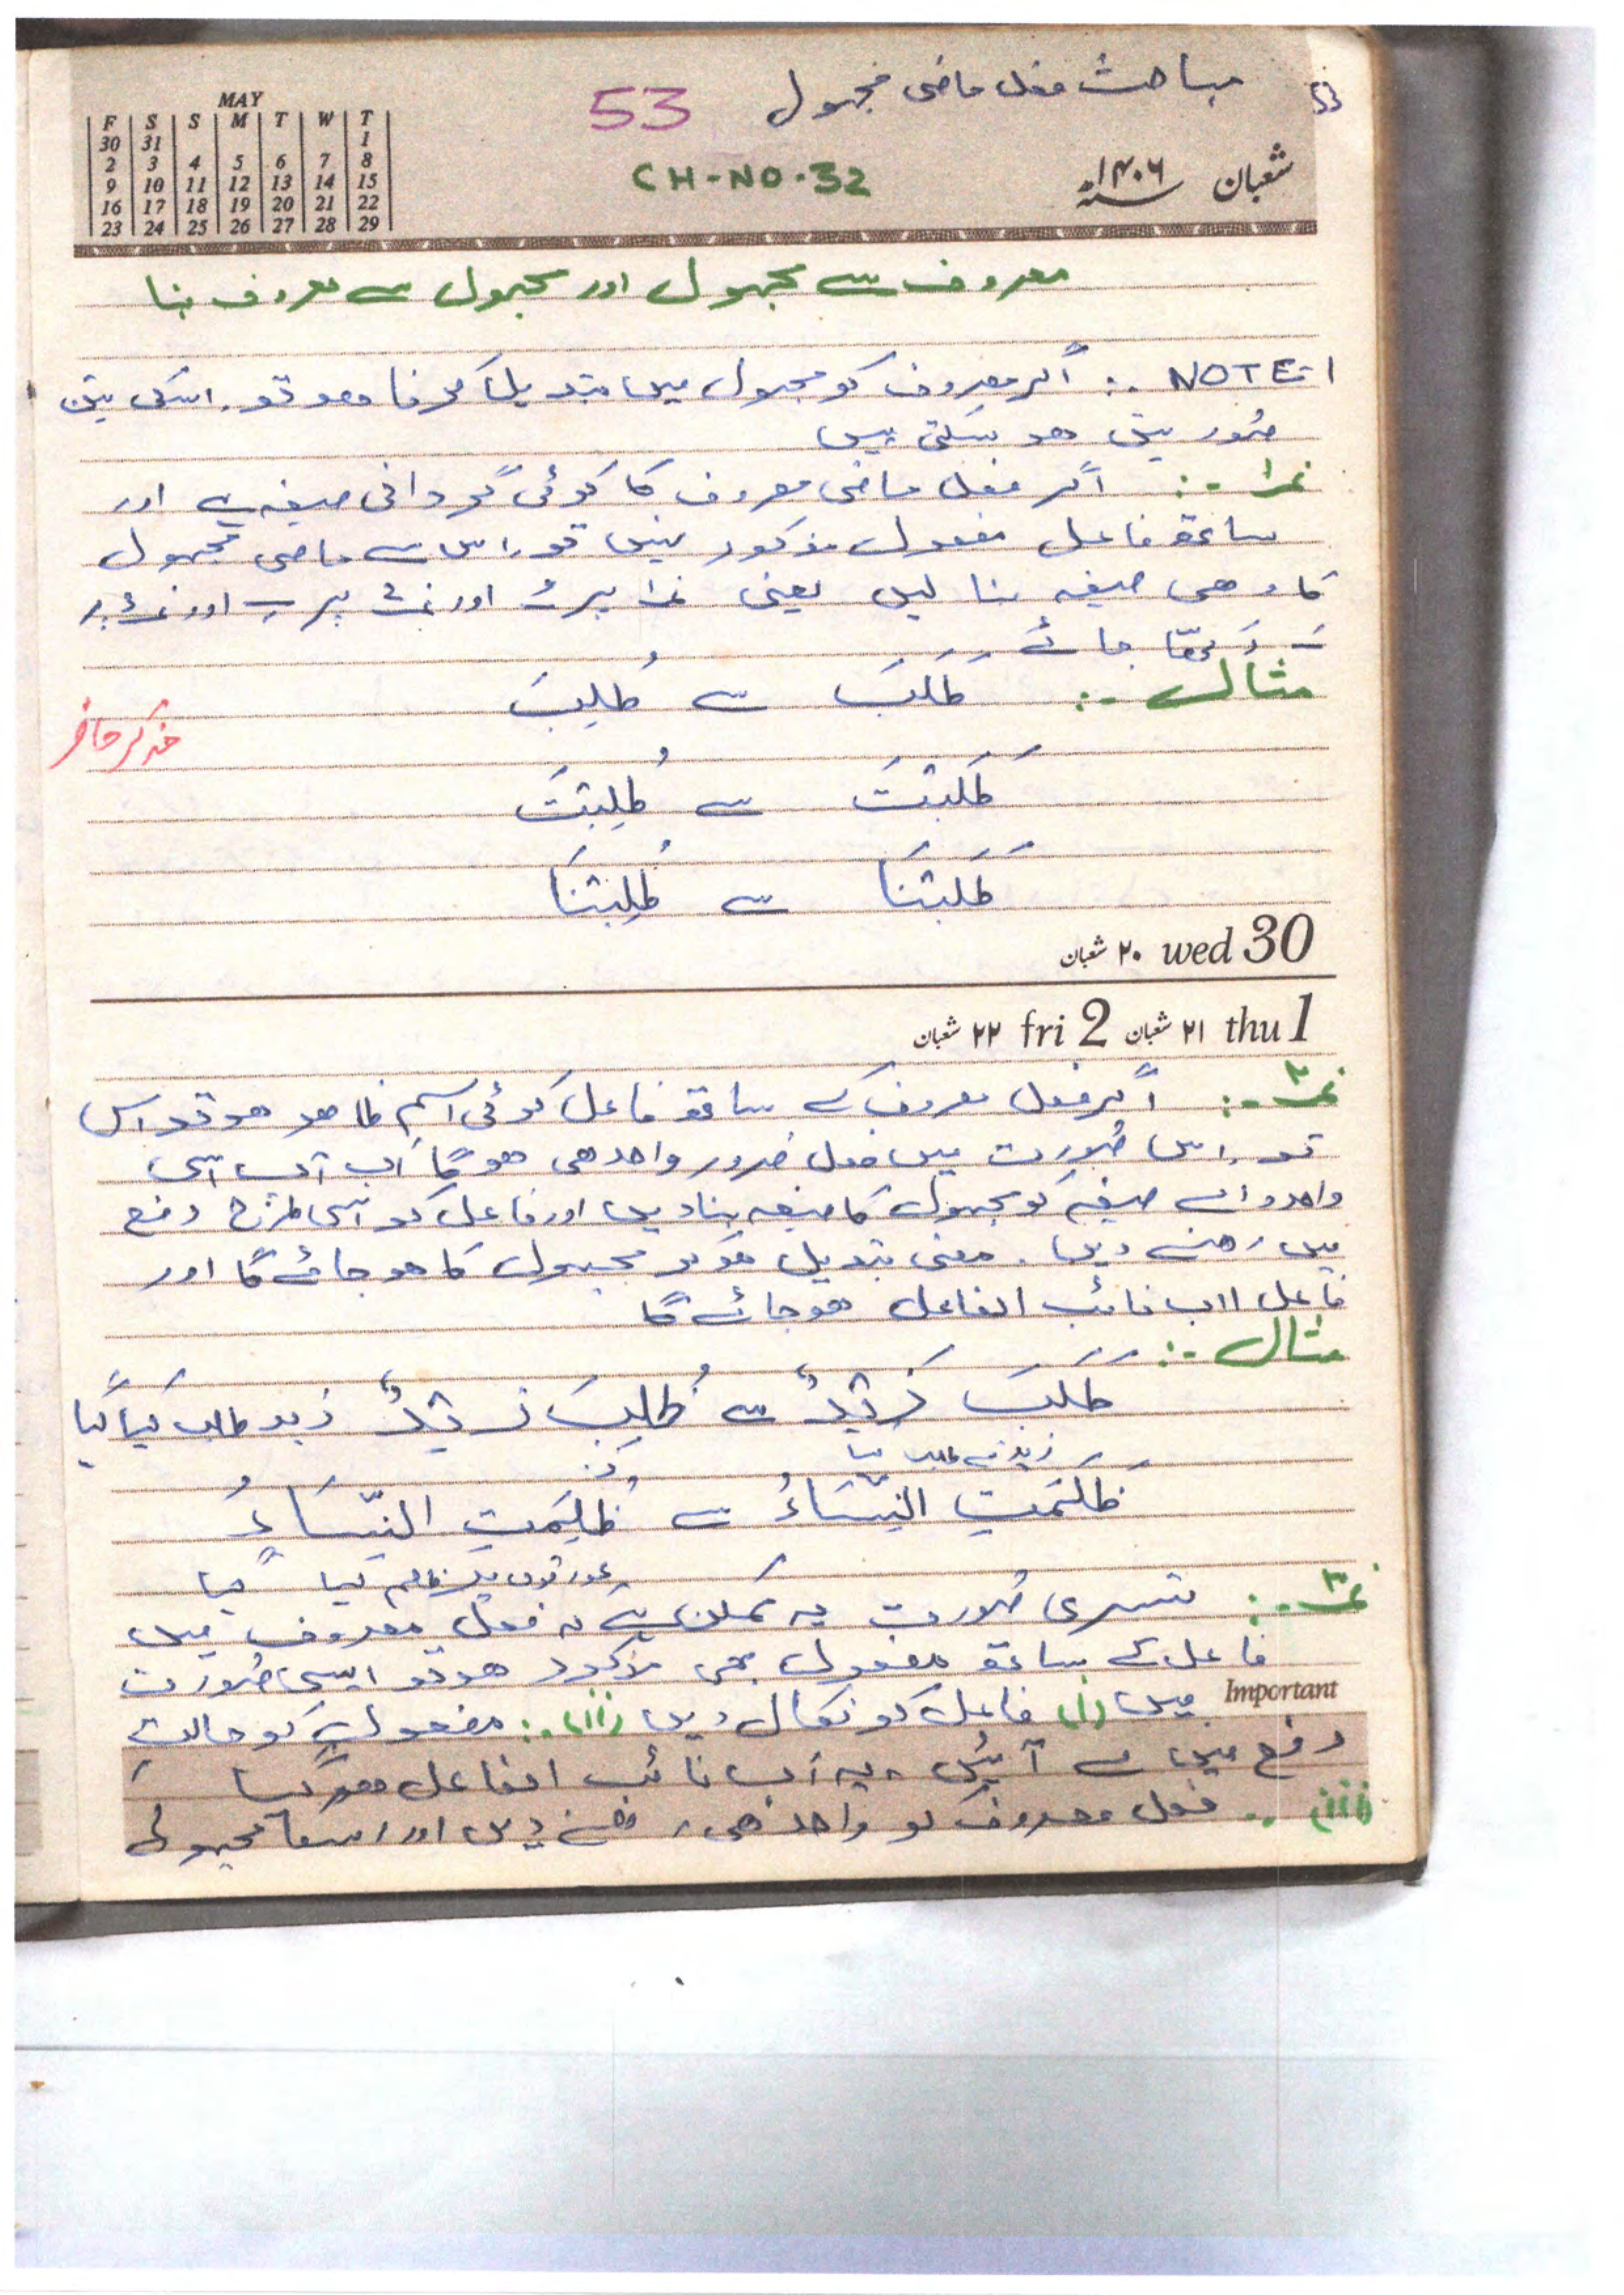 53
مباحث فعل ماضی مجہول
53
شعبان ۱۴۰۶ سنہ
CH-NO-32
MAY
F S S M T W T
30 31 1
2 3 4 5 6 7 8
9 10 11 12 13 14 15
16 17 18 19 20 21 22
23 24 25 26 27 28 29
معروف سے مجہول اور مجہول سے معروف بنا
NOTE 1 :- اگر معروف کو مجہول میں تبدیل کرنا ہو تو اسکی تین
صورتیں ھو سکتی ہیں
نمبر۱ :- اگر فعل ماضی معروف کا کوئی گردانی صیغہ ہے اور
ساتھ فاعل مفعول مذکور نہیں تو اس سے ماضی مجہول
کا وھی صیغہ بنا لیں یعنی نمبر۱ پر ُ اور نمبر۲ پر ِ اور نمبر۳ پر
َ رکھا جائے
مثال :- طَلَبَ سے طُلِبَ
مذکر حاضر
طَلَبْتَ سے طُلِبْتَ
طَلَبْنَا سے طُلِبْنَا
۲۰ شعبان wed 30
۲۲ شعبان fri 2 ۲۱ شعبان thu 1
نمبر۲ :- اگر فعل معروف کے ساتھ فاعل کوئی اسم ظاھر ھو تو اس
تو اس صورت میں فعل ضرور واحد ھی ھو گا اب آپ اسی
واحد والے صیغہ کو مجہول کا صیغہ بنا دیں اور فاعل کو اسی طرح رفع
میں رھنے دیں۔ معنی تبدیل ھو کر مجہول کا ھو جائے گا اور
فاعل اب نائب الفاعل ھو جائے گا
مثال :-
طَلَبَ زَیْدٌ سے طُلِبَ زَیْدٌ زید طلب کیا گیا
زید نے طلب کیا
ظَلَمَتِ النِّسَاءُ سے ظُلِمَتِ النِّسَاءُ
عورتوں پر ظلم کیا گیا
نمبر۳ :- تیسری صورت یہ ممکن ہے کہ فعل معروف میں
فاعل کے ساتھ مفعول بھی مذکور ھو تو ایسی صورت
Important
میں (i) فاعل کو نکال دیں (ii) :- مفعول کو حالت
رفع میں لے آئیں، یہ اب نائب الفاعل ھو گیا
(iii) :- فعل معروف کو واحد ھی رکھنے دیں اور اسکا مجہول